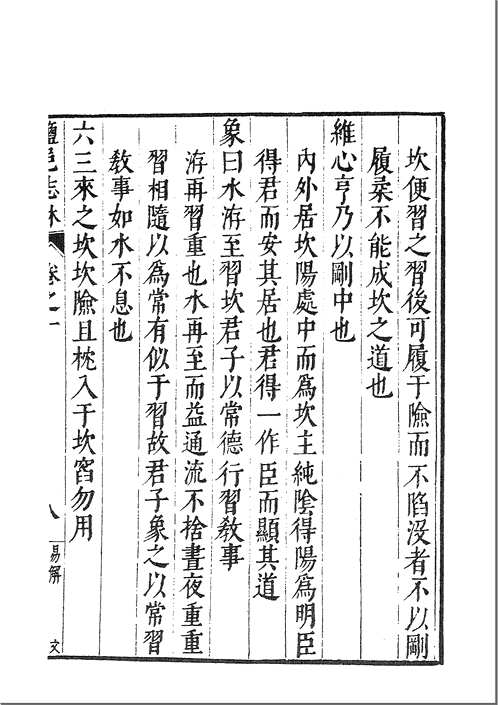 坎便習之習後可履于險而不陷没者不以剛
履柔不能成坎之道也
維心亨乃以剛中也
内外居坎陽處中而爲坎主純陰得陽爲明臣
得君而安其居也君得一作臣而顯其道
象曰水洊至習坎君子以常德行習敎事
洊再習重也水再至而益通流不捨晝夜重重
習相隨以爲常有似于習故君子象之以常習
敎事如水不息也
六三來之坎坎險且枕入于坎窞勿用
鹽邑志林 卷之一 八 易解 文